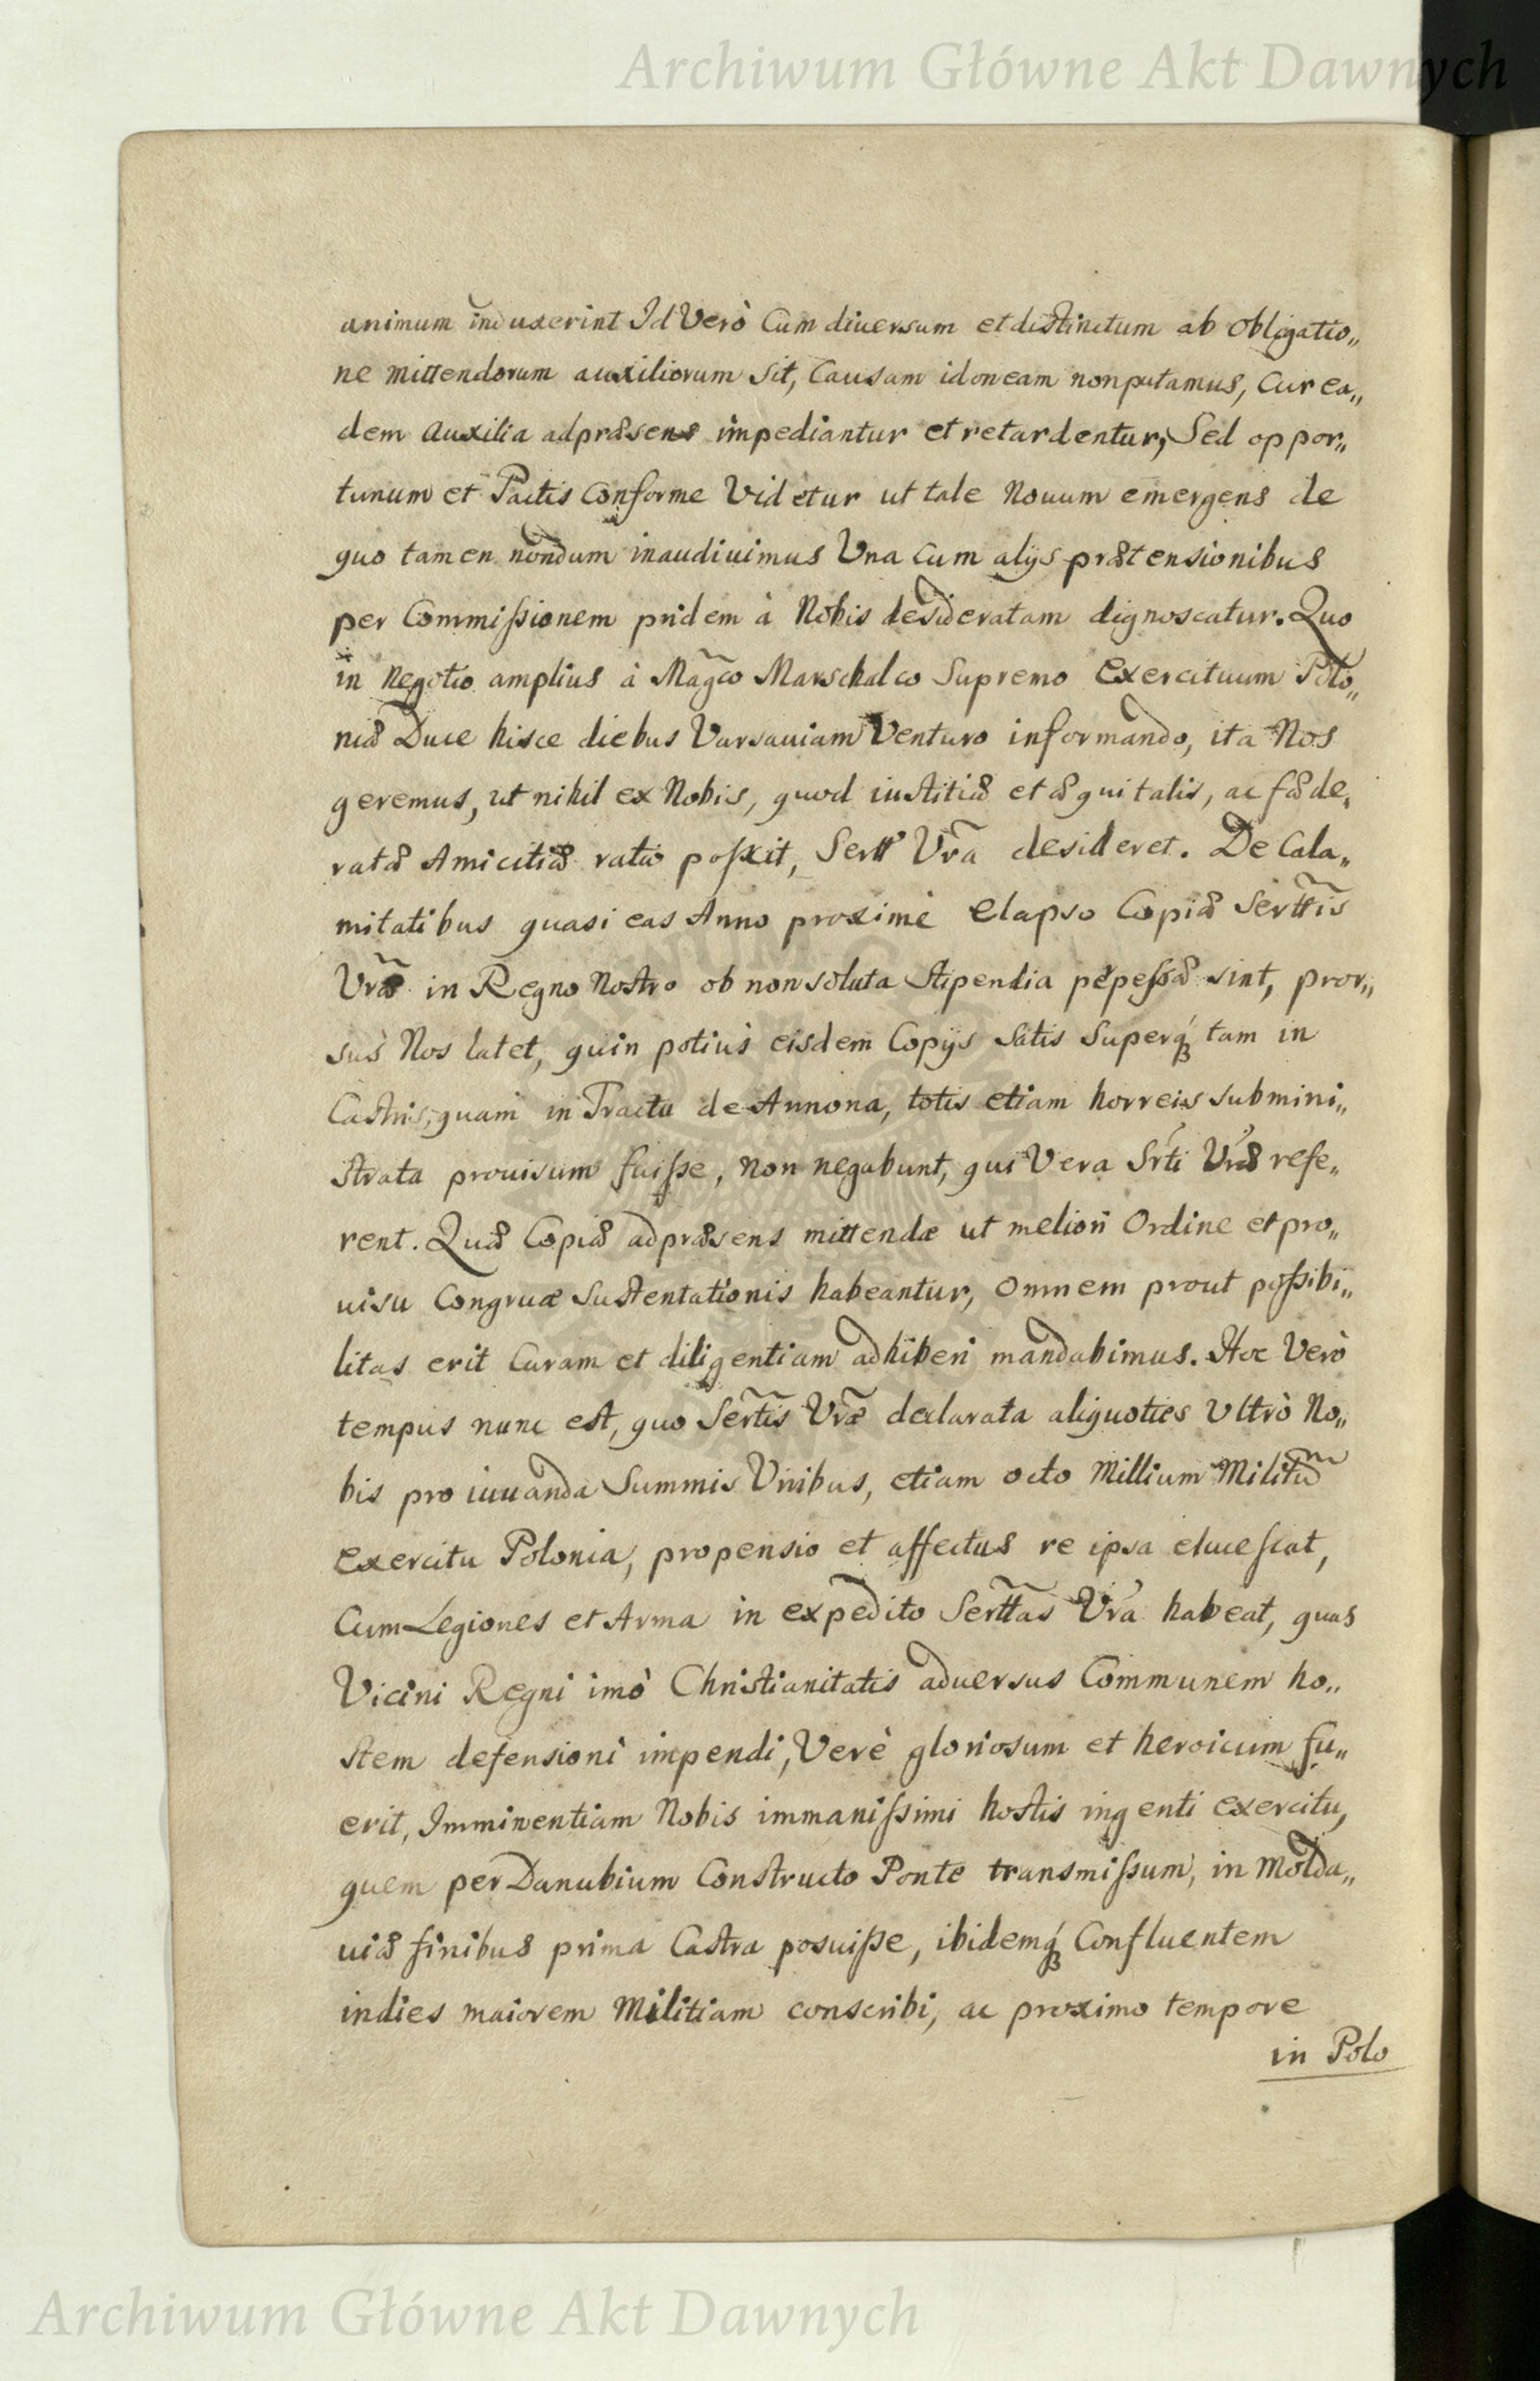 Archiwum Główne Akt Dawnych
animum induxerint Id Verò Cum diuersum et distinctum ab Obligatio„
ne mittendorum auxiliorum sit, Causam idoneam non putamus, Cur ea„
dem Auxilia ad præsens impediantur et retardentur, Sed oppor„
tunum et Pactis Conforme Videtur ut tale Nouum emergens de
quo tamen nondum inaudiuimus Vna Cum alijs prætensionibus
per Commißionem pridem à Nobis desideratam dignoscatur. Quo
in Negotio amplius à Mag̃co Marschalco Supremo Exercituum Polo„
niæ Duce hisce diebus Varsauiam Venturo informando, ita Nos
geremus, ut nihil ex Nobis, quod iustitiæ et æquitatis, ac fæde„
ratæ Amicitiæ ratio poscit, Sertt Vr̃a desideret. De Cala„
mitatibus quasi eas Anno proximè elapso Copiæ Sertt̃is
Vr̃æ in Regno Nostro ob non soluta Stipendia pepeßæ sint, pror„
sus Nos latet, quin potiùs eisdem Copijs Satis Superq́ tam in
Castris, quam in Tractu de Annona, totis etiam horreis submini„
strata prouisum fuiße, non negabunt, qui Vera Srti Vræ refe„
rent. Quæ Copiæ ad præsens mittendæ ut meliori Ordine et pro„
uisu Congruæ Sustentationis habeantur, Omnem prout poßibi„
litas erit Curam et diligentiam adhiberi mandabimus. Hoc Verò
tempus nunc est, quo Sert̃is Vr̃æ declarata aliquoties Vltrò No„
bis pro iuuanda Summis Viribus, etiam octo Millium Militũ
Exercitu Polonia, propensio et affectus re ipsa elucescat,
Cum Legiones et Arma in expedito Sertt̃as Vr̃a habeat, quas
Vicini Regni imò Christianitatis aduersus Communem ho„
stem defensioni impendi, Verè gloriosum et heroicum fu„
erit, Imminentiam Nobis immanißimi hostis ingenti exercitu,
quem per Danubium Constructo Ponte transmißum, in Molda„
uiæ finibus prima Castra posuiße, ibidemq́ Confluentem
indies maiorem Militiam conscribi, ac proximo tempore
in Polo
Archiwum Główne Akt Dawnych